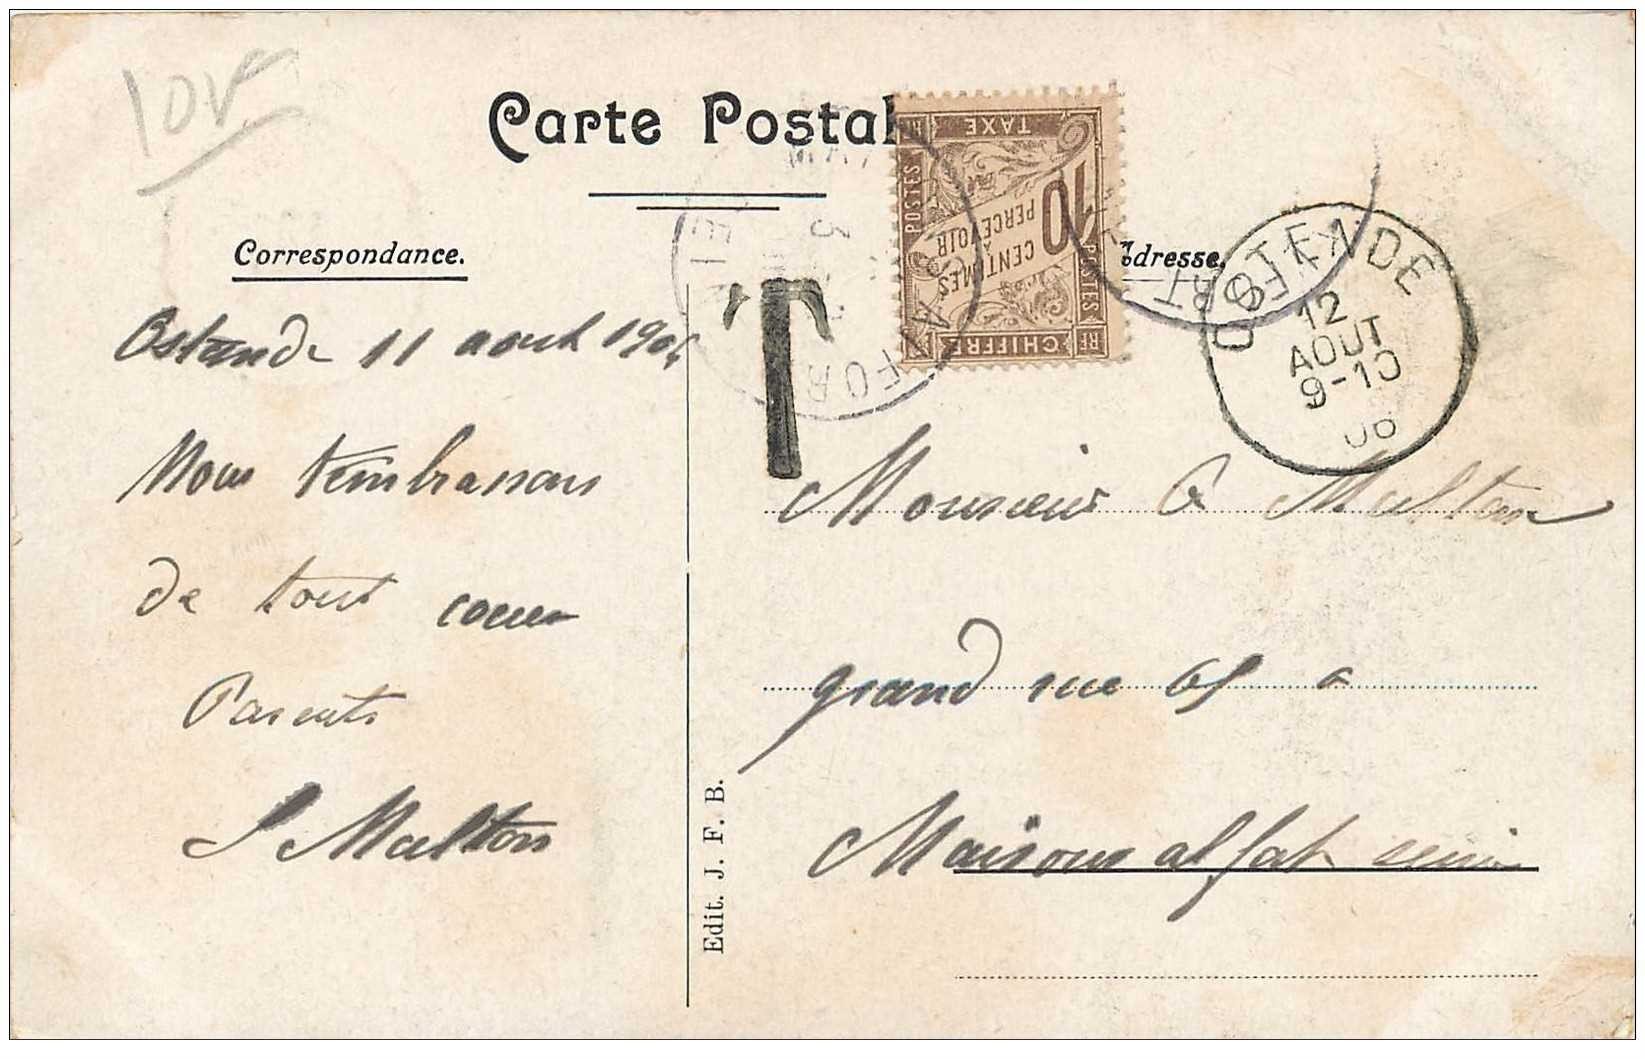 10
Carte Postal
Correspondance.
Adresse.
RF TAXE
POSTES
10
CENTIMES
À
PERCEVOIR
POSTES
CHIFFRE RF
T
OSTENDE
12
AOUT
9-10
06
ALFOR
Ostende 11 aout 190
Nous tembrassons
de tout coeur
Parents
Malton
Monsieur G Malton
grand rue 65 a
Maisons alfort seine
Edit. J. F. B.